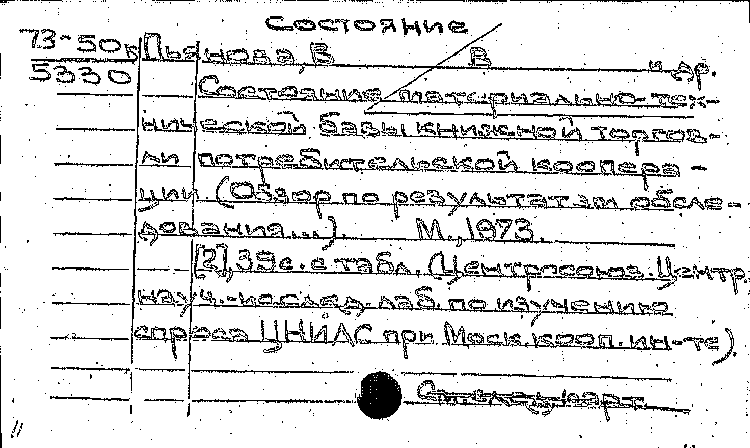 Состояние
73-50к Пьянова, В В и др.
5330 Состояние материально-тех-
нической базы книжной торгов-
ли потребительской коопера-
ции. (Обзор по результатам обсле-
дования...). М., 1973.
[2], 39 с. с табл. (Центросоюз. Центр.
науч.-исслед. лаб. по изучению
спроса ЦНИЛС при Моск. кооп. ин-те).
См. след. карт.